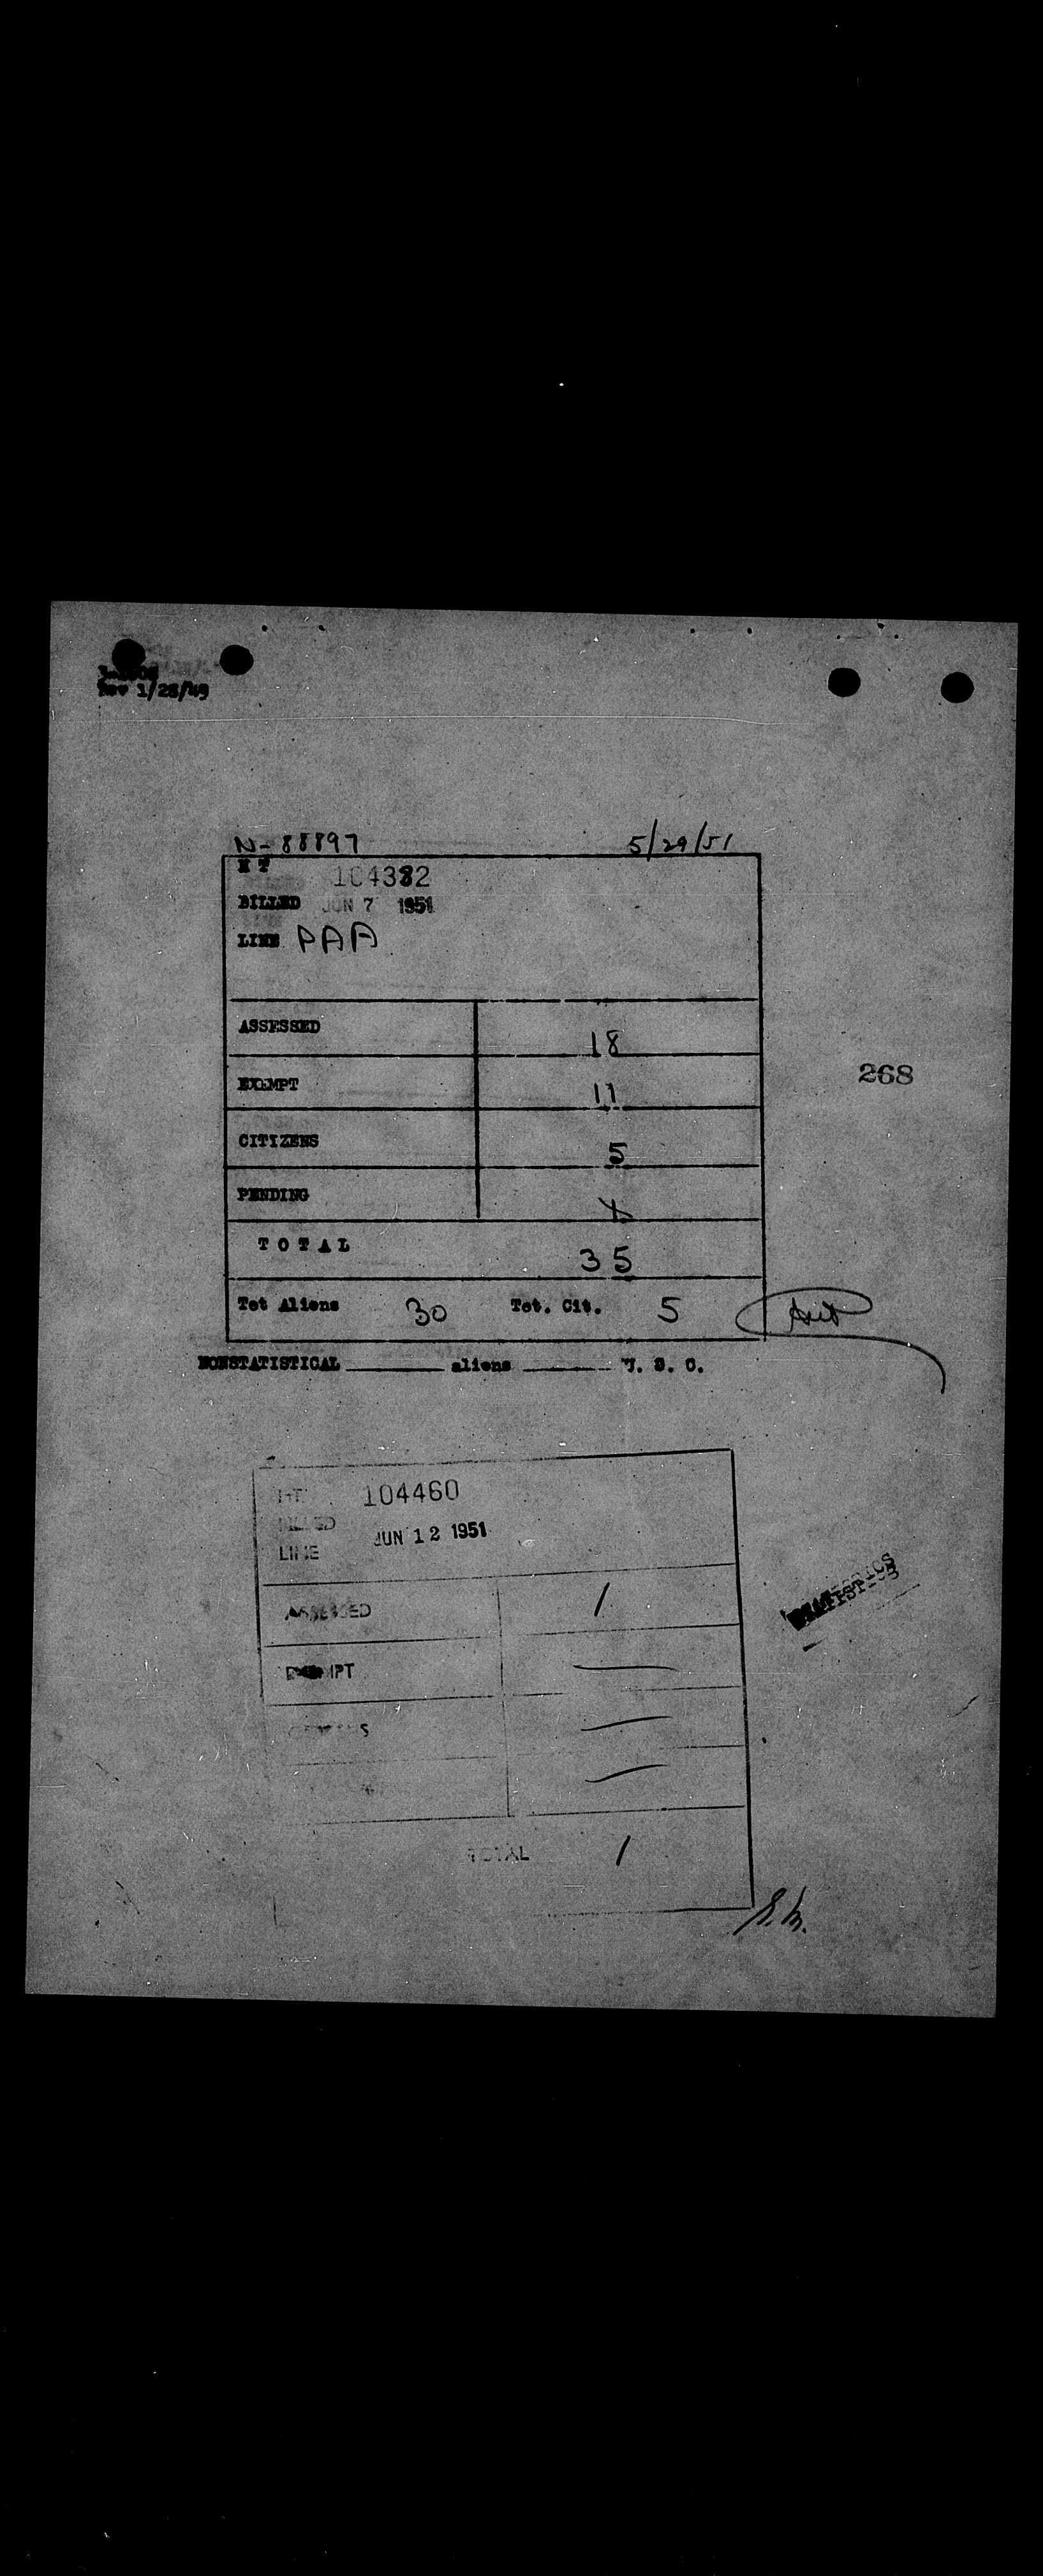 Rev 1/28/49
N-88897 5/29/51
H T 104382
BILLED JUN 7 1951
LINE PAA
ASSESSED 18
EXEMPT 11
268
CITIZENS 5
PENDING
T O T A L 35
Tot Aliens 30 Tot. Cit. 5
NONSTATISTICAL ______ aliens ______ U. S. C.
HT 104460
BILLED JUN 12 1951
LINE
ASSESSED 1
EXEMPT —
—
—
TOTAL 1